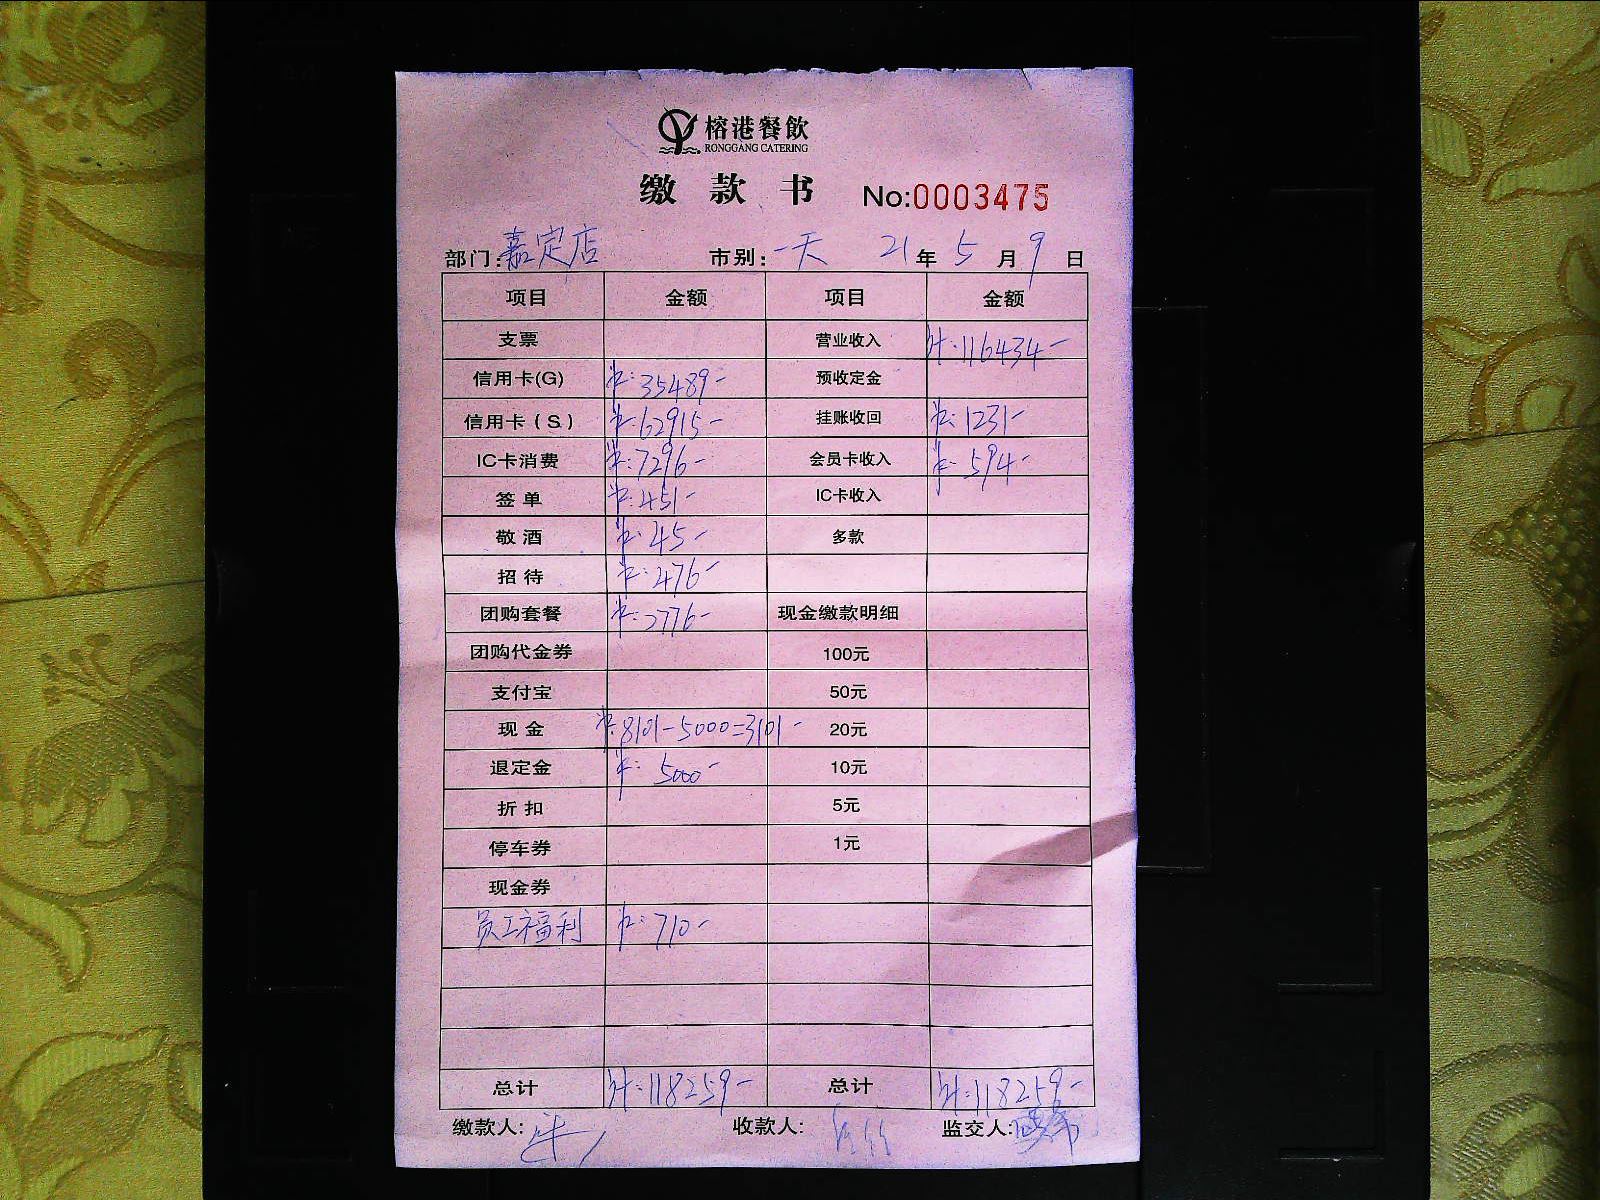 榕港餐飲
RONGGANG CATERING
缴款书 No:0003475
部门:嘉定店 市别:一天 21年5月9日
项目 金额 项目 金额
支票 营业收入 计:116434-
信用卡(G) 35489- 预收定金
信用卡(S) 62915- 挂账收回 1231-
IC卡消费 7296- 会员卡收入 594-
签单 451- IC卡收入
敬酒 45- 多款
招待 476-
团购套餐 2776- 现金缴款明细
团购代金券 100元
支付宝 50元
现金 8101-5000=3101- 20元
退定金 5000- 10元
折扣 5元
停车券 1元
现金券
员工福利 710-
总计 计:118259- 总计 计:118259-
缴款人: 收款人: 监交人: